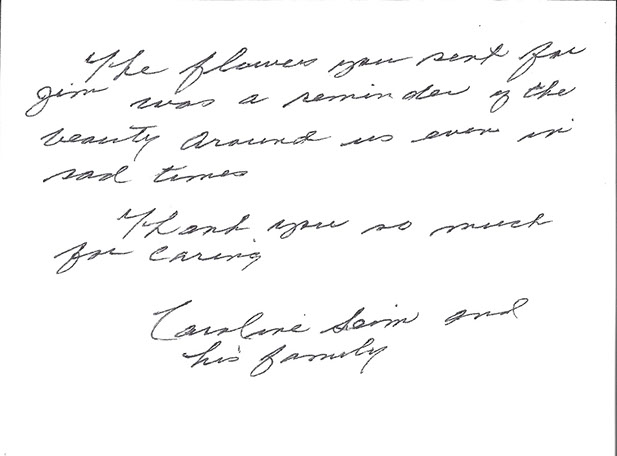 The flowers you sent for
Jim was a reminder of the
beauty around us even in
sad times
Thank you so much
for caring
Caroline and
his family